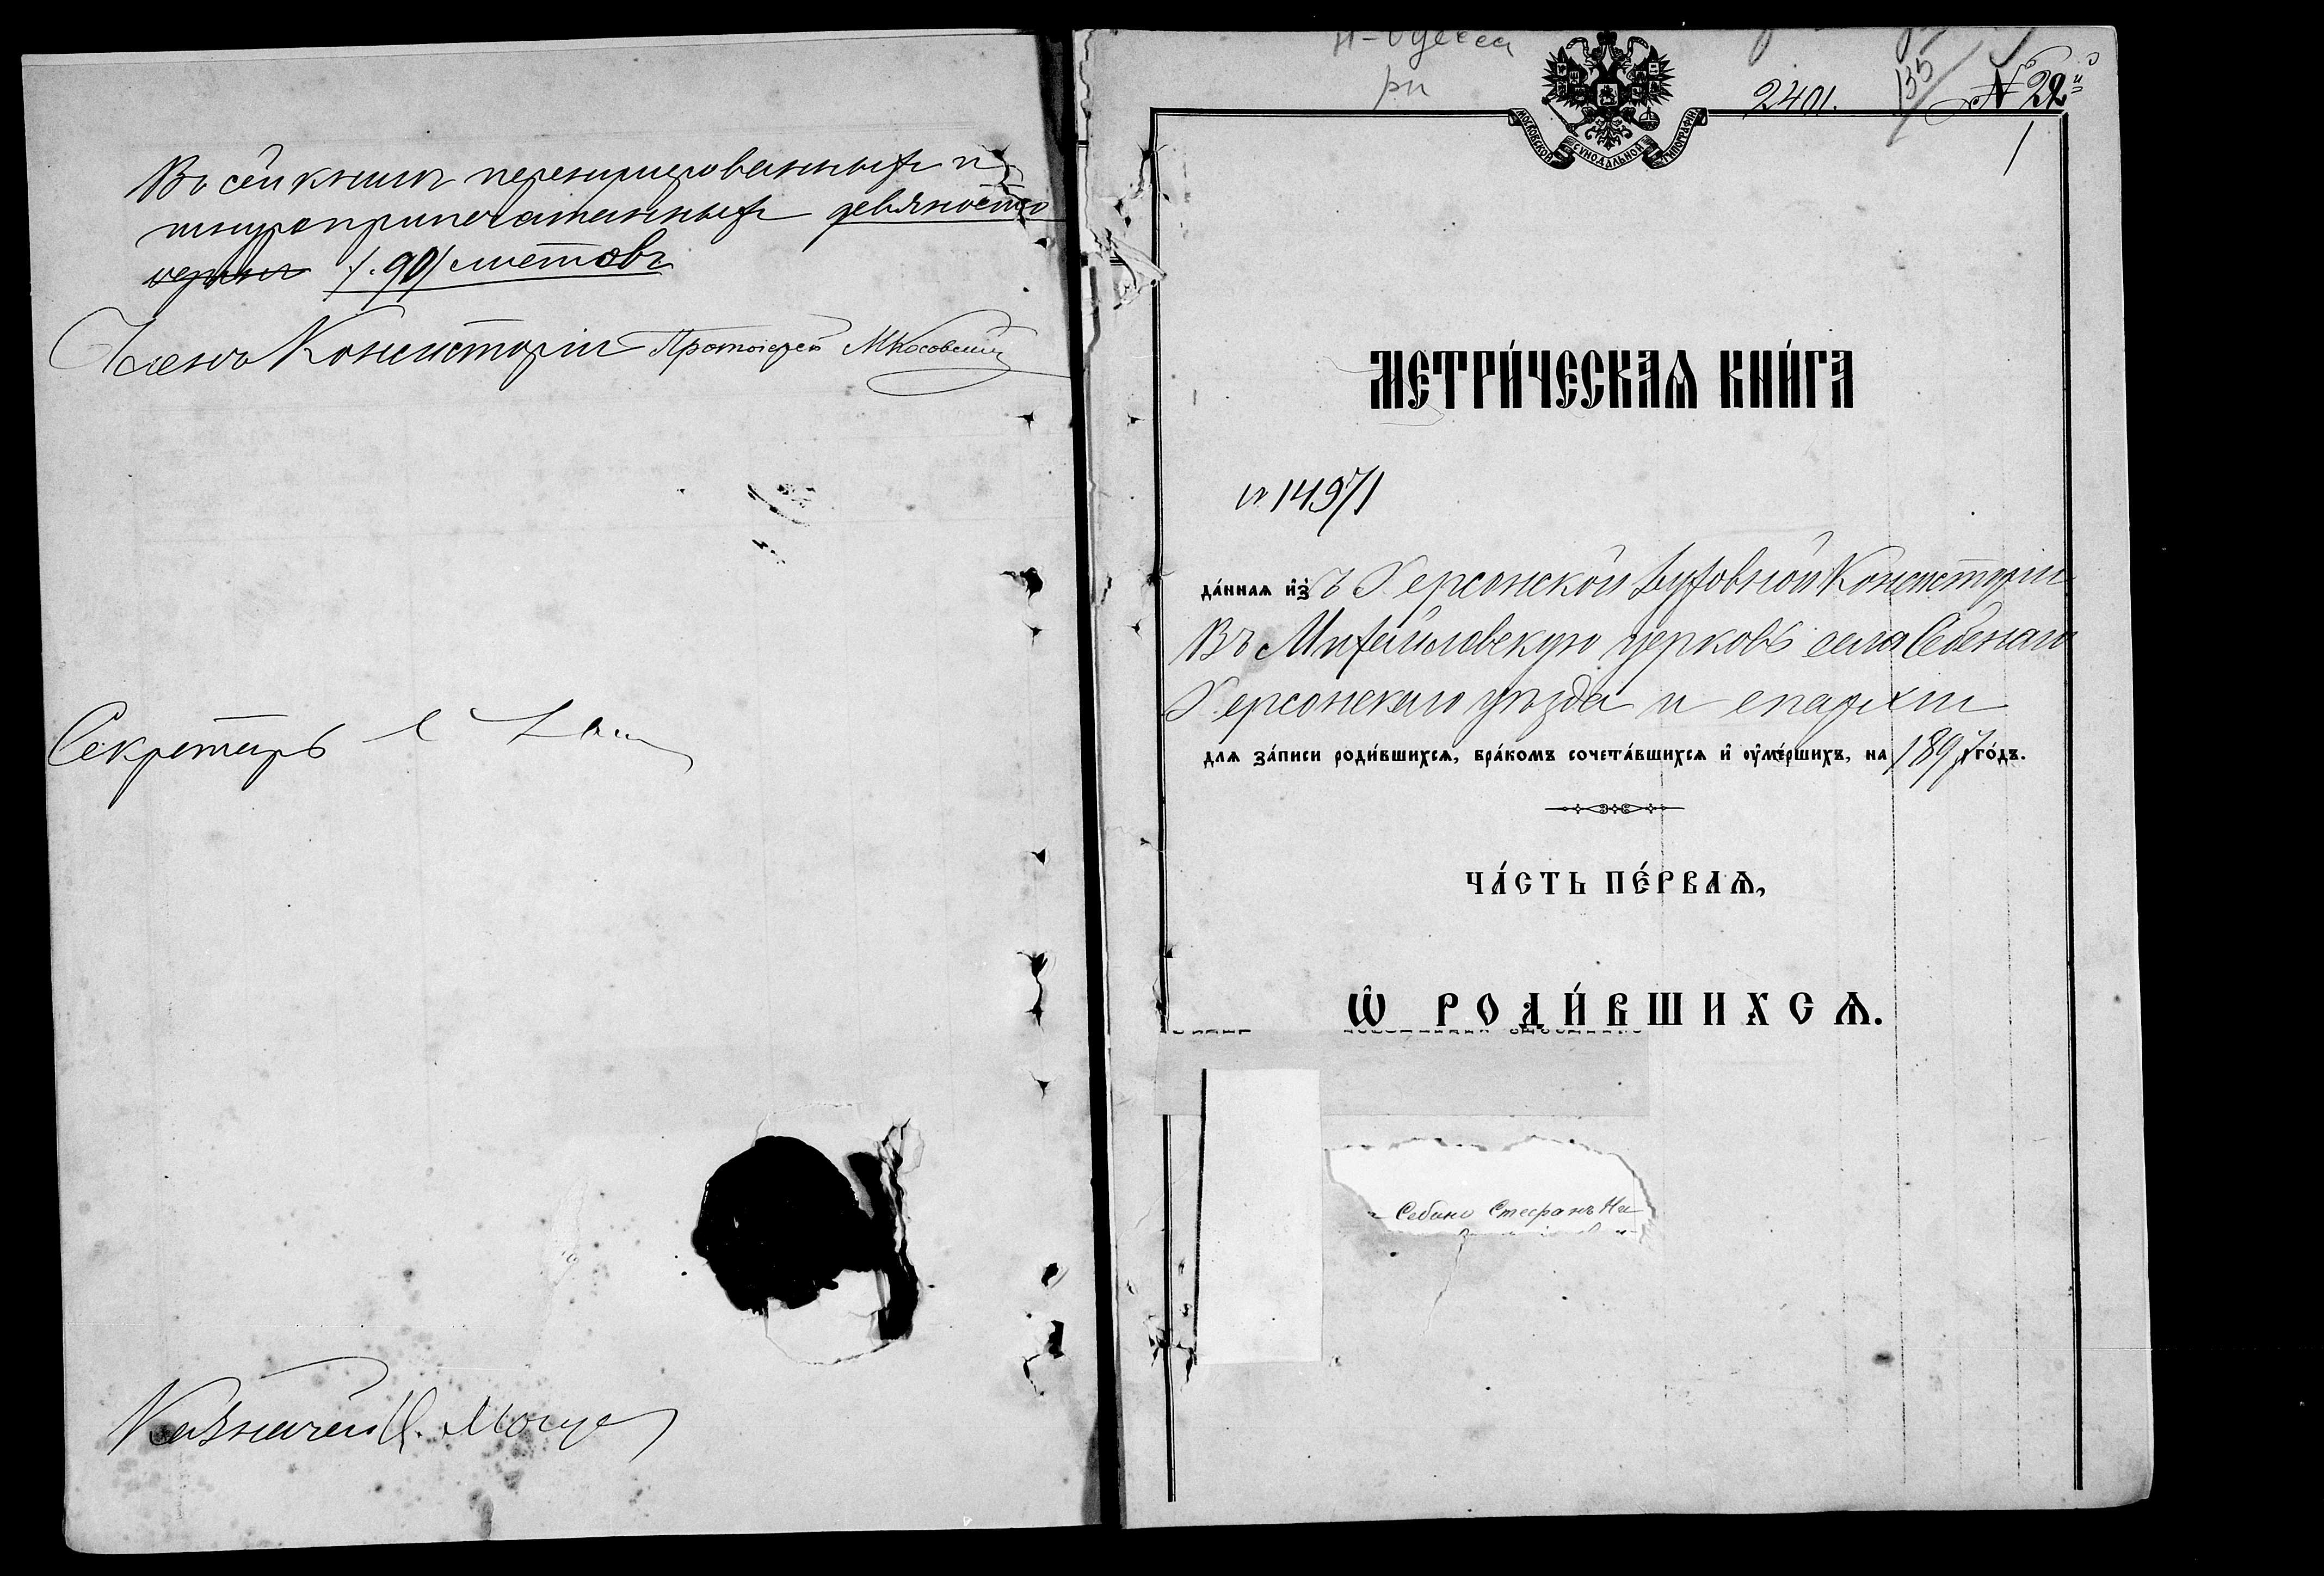 Въ сей книгѣ перенумерованныхъ и
шнуроприпечатанныхъ девяносто
/. 90/ листовъ
Членъ Консисторіи Протоіерей М Косовскій
Секретарь
Казначей
Н-Одесса
рп
2401.
135
№ 22й
1
МОСКОВСКОЙ СѴНОДАЛЬНОЙ ТИПОГРАФІИ
МЕТРИ́ЧЕСКАѦ КНИ́ГА
№ 14971
да́ннаѧ и҆зъ Херсонской Духовной Консисторіи
Въ Михайловскую церковь села Себенаго
Херсонскаго уѣзда и епархіи
длѧ за́писи роди́вшихсѧ, бра́комъ сочета́вшихсѧ и҆ ᲂу҆ме́ршихъ, на 1897 го́дъ.
ЧА́СТЬ ПЕ́РВАѦ,
Ѡ҆ РОДИ́ВШИХСѦ.
Себино Стефанъ На